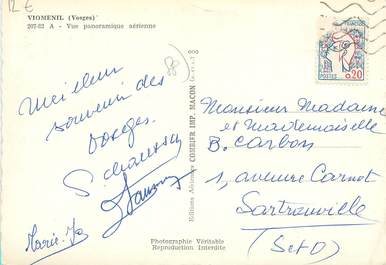 12 €
VIOMENIL (Vosges)
207-82 A - Vue panoramique aérienne
88
Meilleur
souvenir des
Vosges.
Marie-Jo
Editions Aériennes COMBIER IMP. MACON
Photographie Véritable
Reproduction Interdite
POSTES
0,20
Monsieur Madame
et Mademoiselle
B. Carbon
1, avenue Carnot
Sartrouville
(S et O)